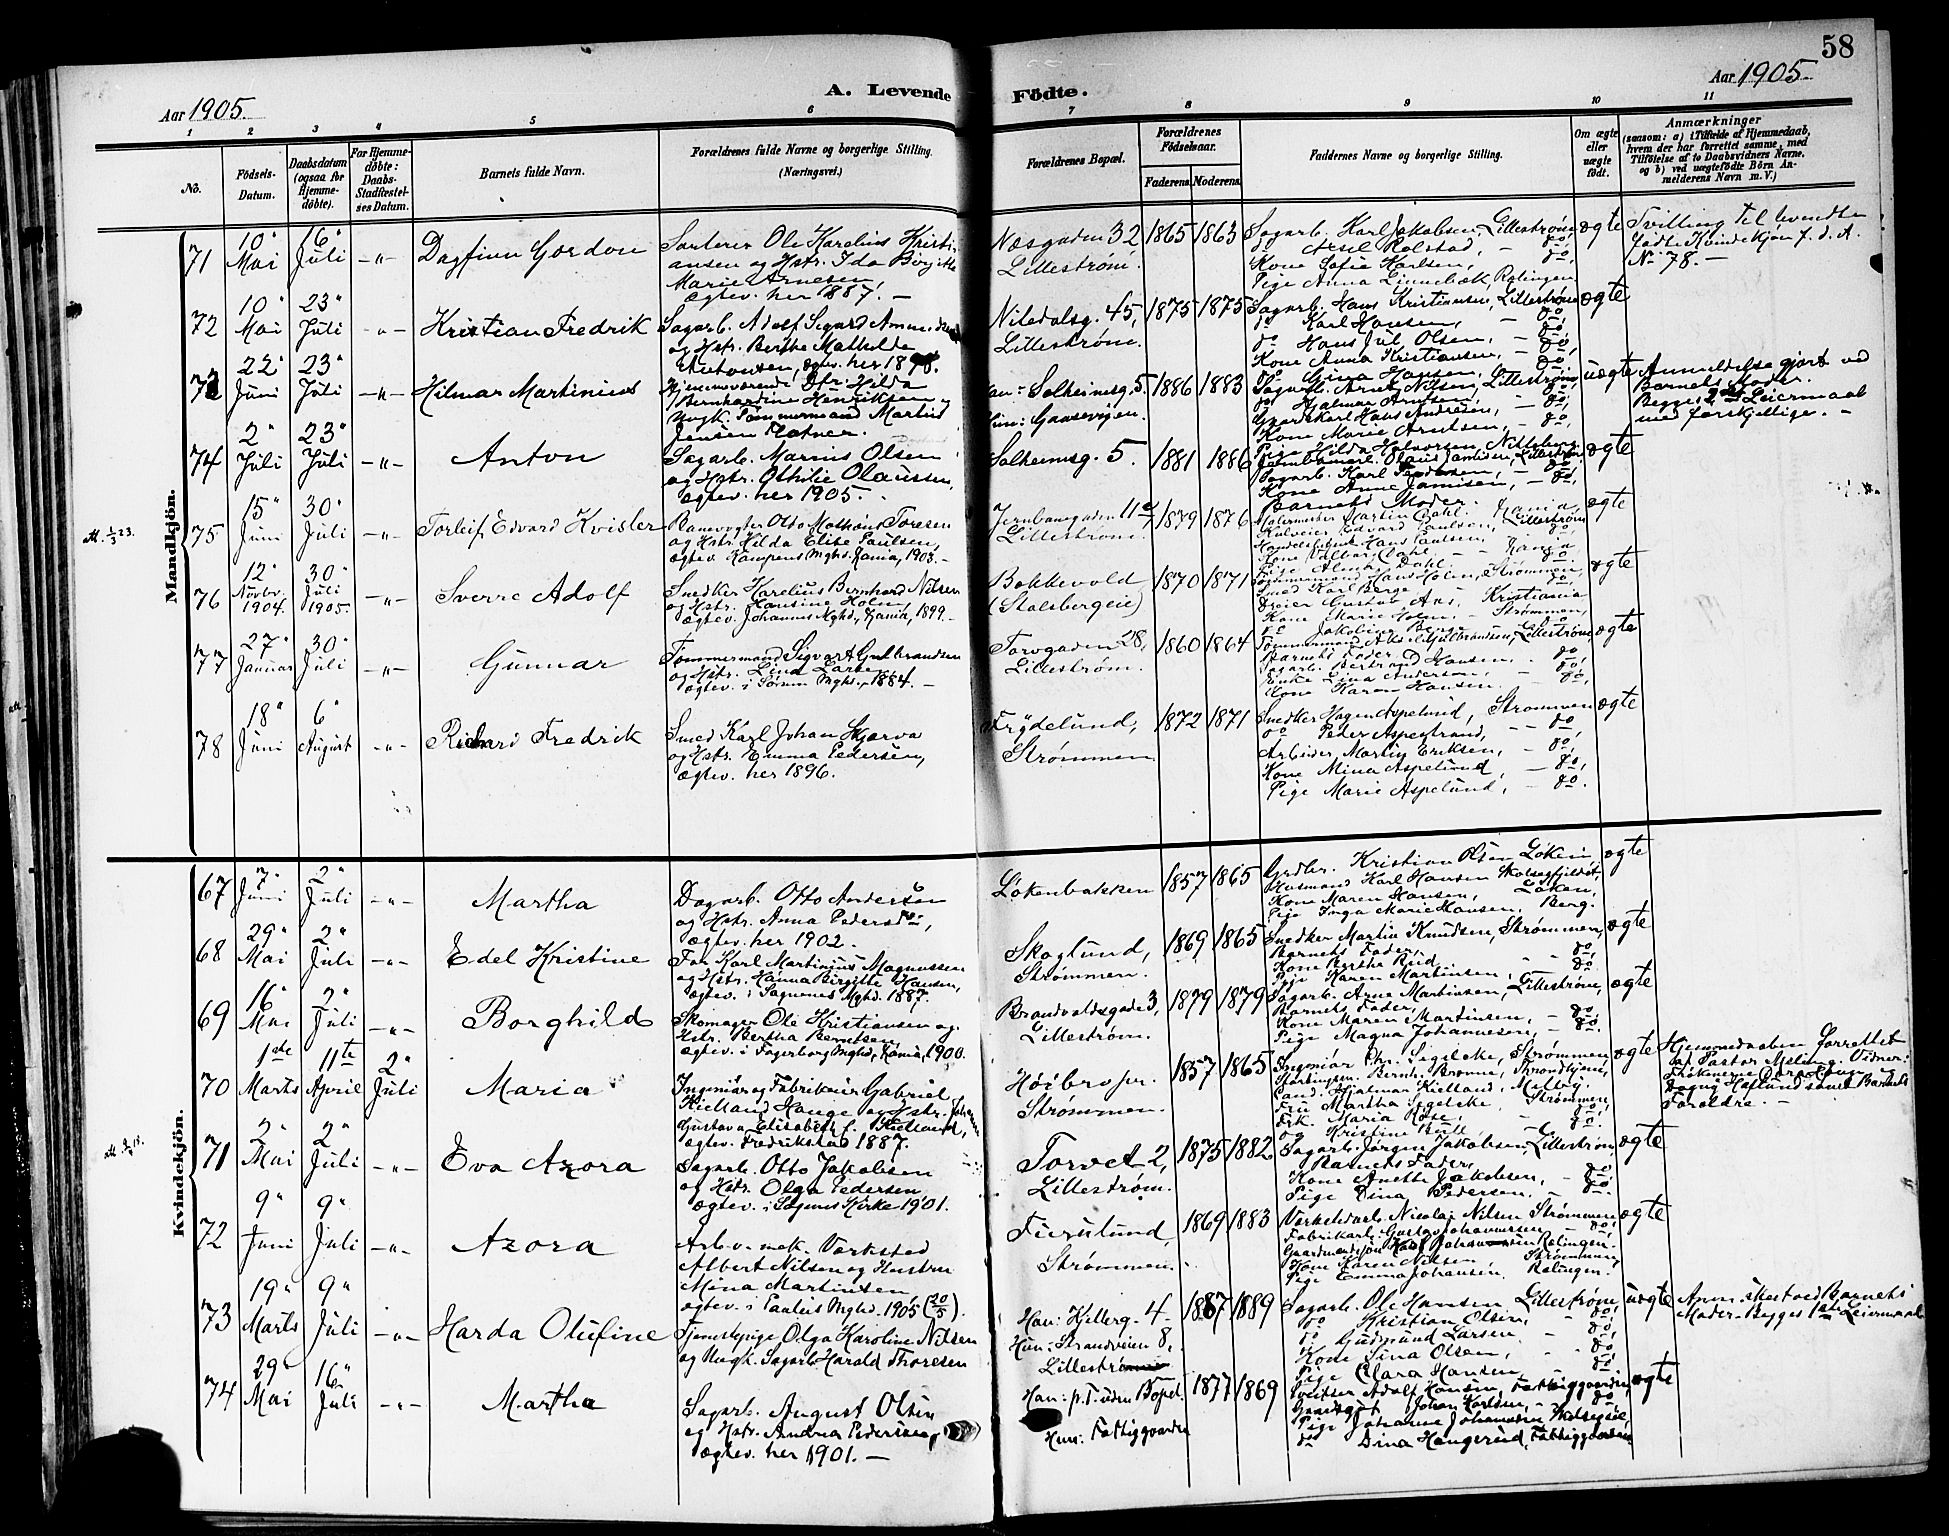 58
Aar 1905.
A. Levende Födte.
Aar 1905.
1 2 3 4 5 6 7 8 9 10 11
No.
Födsels-Datum.
Daabsdatum (ogsaa for Hjemme-döbte).
For Hjemme-döbte: Daabs-Stadfæstel-ses Datum.
Barnets fulde Navn.
Forældrenes fulde Navne og borgerlige Stilling. (Næringsvei.)
Forældrenes Bopæl.
Forældrenes Födselsaar.
Faderens. Moderens.
Faddernes Navne og borgerlige Stilling.
Om ægte eller uægte födt.
Anmærkninger
(saasom: a) i Tilfælde af Hjemmedaab, hvem der har forrettet samme, med Tilföielse af to Daabsvidners Navne, og b) ved uægtefödte Börn An-melderens Navn m. V.)
Mandkjön.
71
10" Mai
6" Juli
-"-
Dagfinn Gordon
Sorterer Ole Karelius Kristi-
ansen og Hstr. Ida Birgitte
Marie Arnesen,
ægtev. her 1887. -
Næsgaden 32
Lillestrøm.
1865 1863
Sagarb. Karl Jakobsen, Lillestrøm
Aksel Rolstad, - do,
Kone Sofie Karlsen, do,
Pige Anna Linnebæk, Rælingen
ægte
Tvilling til levende
født Kvindekjøn f. d. A.
No 78. -
72
10" Mai
23" Juli
-"-
Kristian Fredrik
Sagarb. Adolf Sigard
og Hstr. Berthe Mathilde
Antonsen, ægtev. her 1898.
Nitedalsg. 45,
Lillestrøm.
1875 1875
Sagarb. Hans Kristiansen, Lillestrøm
do Karl Hansen, - do,
do Hans Jul Olsen, - do,
Kone Anna Kristiansen, - do,
do Gina Hansen, - do,
ægte
73
22" Juni
23" Juli
-"-
Hilmar Martinius
Hjemmeværende Dtr. Hilda
Bernhardine Henriksen og
Ungk. Tømmermand Martin
Jensen Platner.
Han: Solheimsg. 5
Hun: Gaasevejen.
1886 1883
Sagarb. Arnt Nilsen, Lillestrøm,
do Hjalmar Arntsen, - do,
Gaardskarl Hans Andresen, - do,
Kone Marie Arntsen, - do,
Pige Hilda Halvorsen, Nitteberg
uægte
Anmeldelse gjort ved
Barnets Moder.
Begges 2det Leiermaal
med forskjellige. -
74
2" Juli
23" Juli
-"-
Anton
Sagarb. Marius Olsen
og Hstr. Othilie Olaussen,
ægtev. her 1905.
Solheimsg. 5.
1881 1886
Jernbanearb. Olaus Jamissen, Lillestrøm
Sagarb. Karl Pedersen - do,
Kone Anne Jamisen, - do,
Barnets Moder.
ægte
75
15" Juni
30" Juli
-"-
Torleif Edvard Kvisler
Banevogter Otto Mathæus Toresen
og Hstr. Hilda Elise Paulsen,
ægtev. Kampens Mghd. Kania, 1903. -
Jernbanegaden 11
Lillestrøm.
1879 1876
Malermester Martin Dahl. Kania,
Kulveier Edvard Paulsen, Lillestrøm
Handelsfuldm. Hans Paulsen, do,
Kone Valborg Dahl - Kania,
ægte
att. 1/3 23.
76
12" Novbr. 1904.
30" Juli 1905.
-"-
Sverre Adolf
Snedker Karelius Bernhard Nilsen
og Hstr. Hansine Holm,
ægtev. Johannes Mghd., Kania, 1899. -
Bokkevold
(Stalsbergeie)
1870 1871
Tømmermand Hans Holm, Strømmen,
Smed Karl Berge do,
Dreier Gustav Ans. Kristiania
Kone Marie Holm, - Strømmen,
do Jakobine Berge do,
ægte
77
27" Januar
30" Juli
-"-
Gunnar
Tømmermand Sigvart Gulbrandsen
og Hstr. Lina Larsen
ægtev. i Sørum Mghd., 1884. -
Torvgaden 28,
Lillestrøm.
1860 1864
Tømmermand Aksel Gulbrandsen, Lillestrøm
Barnets Fader, - do
Sagarb. Bertrand Hansen, - do,
Enke Lina Andersen, - do,
Kone Karen Hansen.
ægte
78
18" Juni
6" August
-"-
Richard Fredrik
Smed Karl Johan Skjerva
og Hstr. Emma Pedersen,
ægtev. her 1896.
Frydelund,
Strømmen
1872 1871
Snedker Hagen Aspelund, Strømmen
do Peder Aspestrand, - - do,
Arbeider Martin Eriksen, - do,
Kone Mina Aspelund, - do,
Pige Marie Aspelund, - do.
ægte
Kvindekjön.
67
7" Juni
2" Juli
-"-
Martha
Dagarb. Otto Andersen
og Hstr. Anna Pedersdtr.,
ægtev. her 1902.
Løkenbakken
1857 1865
Grdbr. Kristian Olsen Løken,
Husmand Karl Hansen
Kone Maren Hansen, Løken,
Pige Inga Marie Hansen, Berg.
ægte
68
29" Mai
2" Juli
-"-
Edel Kristine
Karl Martinius Magnussen
og Hstr. Hanna Birgitte Hansen,
ægtev. i Sagnenes Mghd. 1887.
Skoglund,
Strømmen.
1869 1865
Snedker Martin Knudsen, Strømmen,
Barnets Fader, do,
Kone Berthe Rud, do
Pige Karen Martinsen, - do,
ægte
69
16" Mai
2" Juli
-"-
Borghild
Skomager Ole Kristiansen og
Hstr. Bertha Berntsen,
ægtev. i Fagerborg Mghd., Kania, 1900.
Brandvaldsgade 3,
Lillestrøm.
1879 1879
Sagarb. Arne Martinsen, Lillestrøm,
Barnets Fader,
Kone Maren Martinsen, - do,
Pige Magna Johannesen, - do,
ægte
70
1ste Marts
11te April
2" Juli
Maria
Ingeniør og Fabrikeier Gabriel
Kielland Hauge og Hstr. Johanne
Gustava Elisabeth f. Kielland,
ægtev. Fredrikstad 1887.
Høibro pr.
Strømmen.
1857 1865
Ingeniør Chr. Segelcke, Strømmen
Stortingsm. Bernh. Brænne, Trondhjem,
Cand. Hjalmar Kielland, Melby,
Fru Martha Segelcke, Strømmen,
Frk. Maria Rose, - do.
ægte
Hjemmedaaben forrettet
af Pastor Meling. Vidner:
Dagny Høflund samt Barnets
Forældre. -
71
2" Mai
2" Juli
-"-
Eva Azora
Sagarb. Otto Jakobsen
og Hstr. Olga Pedersen
ægtev. i Sagenes Kirke 1901.
Torvet 2,
Lillestrøm.
1875 1882
Sagarb. Jørgen Jakobsen, Lillestrøm,
Barnets Fader, do
Kone Anette Jakobsen, - do,
Pige Lina Pedersen. - do.
ægte
72
9" Juni
9" Juli
-"-
Azora
Arb. v. mek. Værksted
Albert Nilsen og Hustru
Mina Martinsen,
ægtev. i Paulus Mghd. 1905 (20/5).
Furulund,
Strømmen.
1869 1883
Værkstedarb. Nicolai Nilsen Strømmen
Fabrikarb. Gustav Johannessen do,
Gaardmandssøn Karl Johannessen Rælingen.
Kone Karen Nilsen Strømmen
Pige Emma Johansen. Rælingen.
ægte
73
19" Marts
9" Juli
-"-
Harda Olufine
Tjenestepige Olga Karoline Nilsen
og Ungk. Sagarb. Harald Thoresen
Han: Kjellerg. 4 -
Hun: Strandveien 8,
Lillestrøm
1887 1889
Sagarb. Ole Hansen Lillestrøm,
do Kristian Olsen, - do,
do Gudmund Larsen - do,
Kone Lina Olsen, - do,
Pige Clara Hansen - do
uægte
Anm. skat ved Barnets
Moder. Begges 1ste Leiermaal.
74
29" Mai
16" Juli
-"-
Martha
Sagarb. August Olsen
og Hstr. Andrea Pedersen,
ægtev. her 1901. -
Han: p. T. uden Bopel.
Hun: Fattiggaarden
1877 1869
Sveitser Adolf Hansen, Fattiggaarden,
Gaardsgut Johan Karlsen, - do
Pige Johanne Johannesen
do Dina Haugerud, Fattiggaarden
ægte